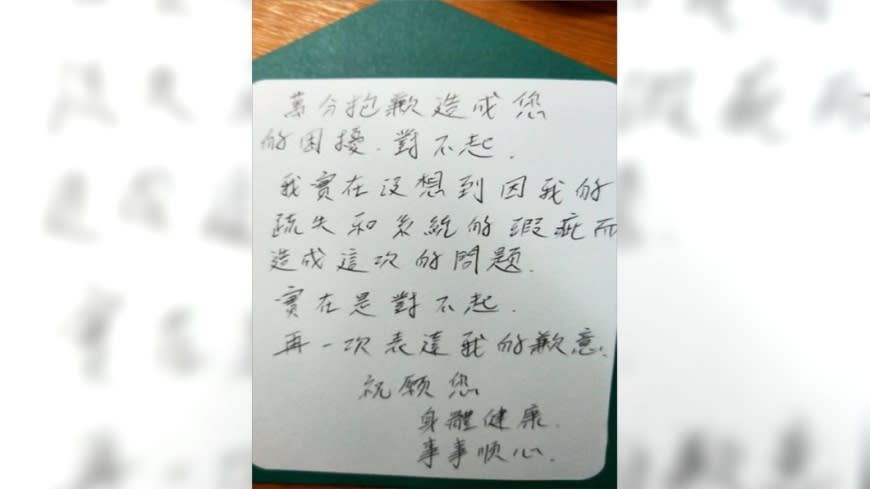 萬分抱歉造成您
的困擾.對不起.
我實在沒想到因我的
疏失和系統的瑕疵而
造成這次的問題.
實在是對不起.
再一次表達我的歉意.
祝願您
身體健康.
事事順心.